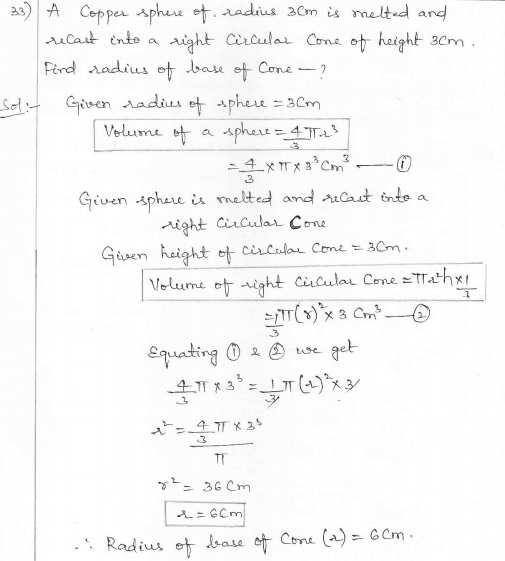 33) A Copper sphere of. radius 3Cm is melted and
recast into a right Circular Cone of height 3cm.
Find radius of base of Cone —?
Sol:- Given radius of sphere = 3Cm
Volume of a sphere = 4/3 πr³
= 4/3 × π × 3³ Cm³ —— ①
Given sphere is melted and recast into a
right Circular Cone
Given height of circular Cone = 3Cm.
Volume of right Circular Cone = πr²h × 1/3
= 1/3 π(r)² × 3 Cm³ —— ②
Equating ① & ② we get
4/3 π × 3³ = 1/3 π (r)² × 3
r² = 4/3 π × 3³ / π
r² = 36 Cm
r = 6Cm
∴ Radius of base of Cone (r) = 6Cm.